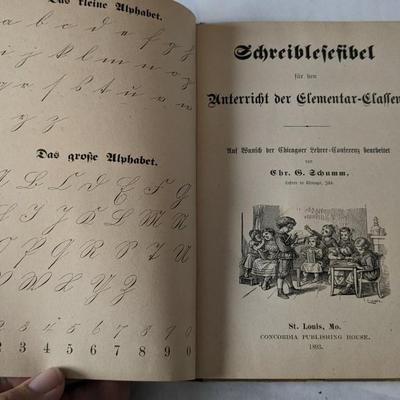 Das kleine Alphabet.
a b c d e f g
h i j k l m n o
p q r s t u v w
x y z
Das große Alphabet.
A B C D E F G
H I J K L M N
O P Q R S T U
V W X Y Z
1 2 3 4 5 6 7 8 9 0
2 3 4 5 6 7 8 9 0
Schreiblesefibel
für den
Unterricht der Elementar-Classen
Auf Wunsch der Chicagoer Lehrer-Conferenz bearbeitet
von
Chr. G. Schumm.
Lehrer in Chicago, Ills.
St. Louis, Mo.
CONCORDIA PUBLISHING HOUSE.
1893.